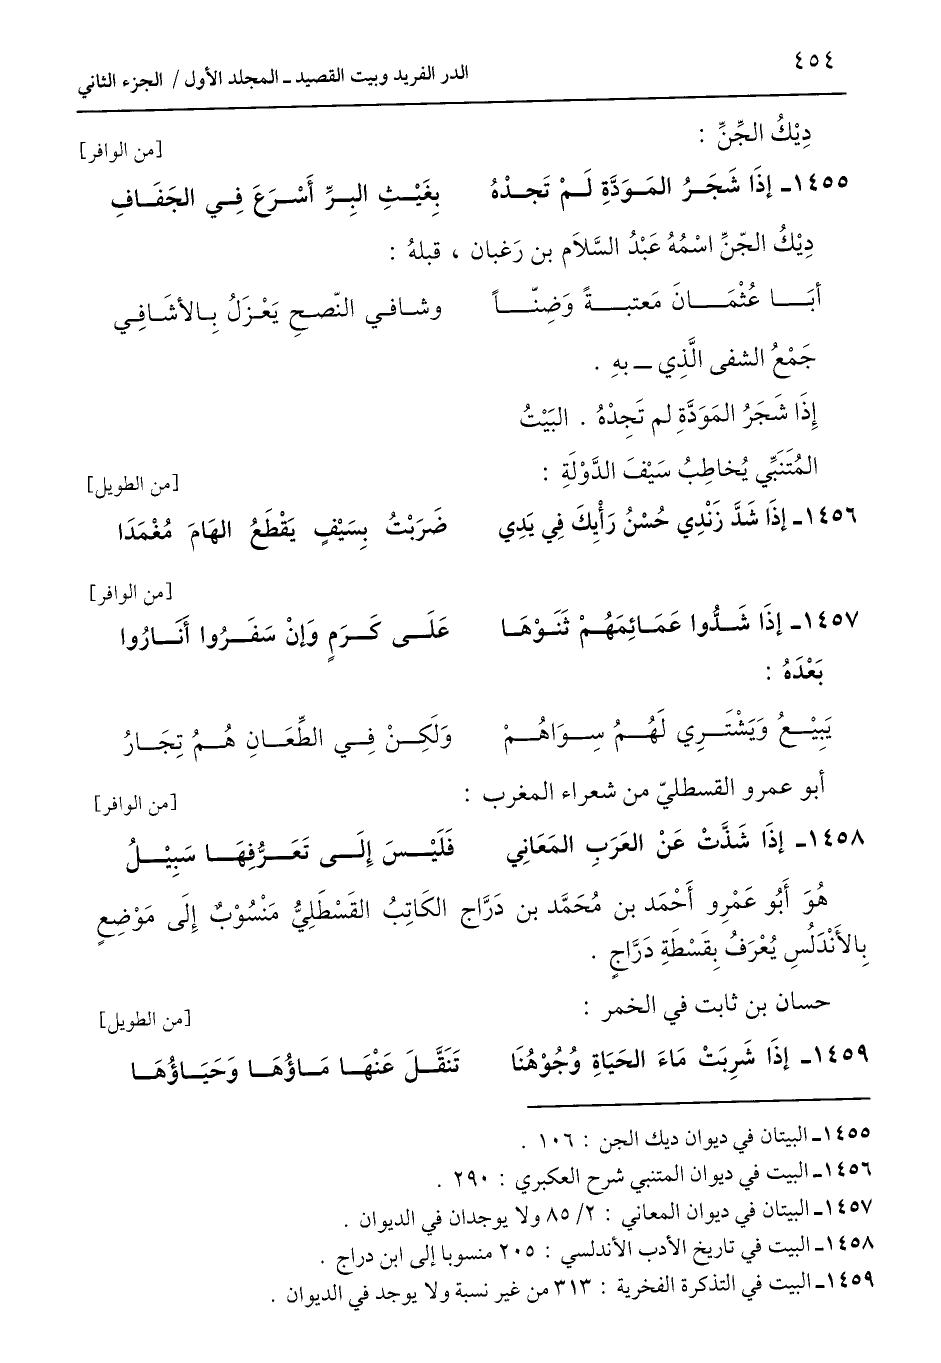 ٤٥٤
الدر الفريد وبيت القصيد ـ المجلد الأول / الجزء الثاني
دِيْكُ الجِّنِّ :
[من الوافر]
١٤٥٥ـ إِذَا شَجَرُ المَوَدَّةِ لَمْ تَجدْهُ بِغَيْثِ البِرِّ أَسْرَعَ فِي الجَفَافِ
دِيْكُ الجّنِّ اسْمُهُ عَبْدُ السَّلاَم بن رَغبان ، قبلهُ :
أَبَا عُثْمَانَ مَعتبةً وَضِنّاً وشافي النّصحِ يَعْزَلُ بِالأشَافِي
جَمْعُ الشفى الَّذِي ـ بهِ .
إِذَا شَجَرُ المَوَدَّةِ لم تَجِدْهُ . البَيْتُ
المُتَنَبِّي يُخاطِبُ سَيْفَ الدَّوْلَةِ :
[من الطويل]
١٤٥٦ـ إِذَا شَدَّ زَنْدِي حُسْنُ رَأْيِكَ فِي يَدِي ضَرَبْتُ بِسَيْفٍ يَقْطَعُ الهَامَ مُغْمَدَا
[من الوافر]
١٤٥٧ـ إِذَا شَدُّوا عَمَائِمَهُمْ ثَنَوْهَا عَلَى كَرَمٍ وَإِنْ سَفَرُوا أَنَارُوا
بَعْدَهُ :
يَبِيْعُ وَيَشْتَرِي لَهُمُ سِوَاهُمْ وَلَكِنْ فِي الطِّعَانِ هُمُ تِجَارُ
أبو عمرو القسطليّ من شعراء المغرب :
[من الوافر]
١٤٥٨ـ إِذَا شَذَّتْ عَنْ العَرَبِ المَعَانِي فَلَيْسَ إِلَى تَعَرُّفِهَا سَبِيْلُ
هُوَ أَبُو عَمْرِو أَحْمَد بن مُحَمَّد بن دَرَّاج الكَاتِبُ القَسْطَلِيُّ مَنْسُوْبٌ إِلَى مَوْضِعٍ
بِالأَنْدَلُسِ يُعْرَفُ بِقَسْطَةِ دَرَّاجٍ .
حسان بن ثابت في الخمر :
[من الطويل]
١٤٥٩ـ إِذَا شَرِبَتْ مَاءَ الحَيَاةِ وُجُوْهُنَا تَنَقَّلَ عَنْهَا مَاؤُهَا وَحَيَاؤُهَا
١٤٥٥ـ البيتان في ديوان ديك الجن : ١٠٦ .
١٤٥٦ـ البيت في ديوان المتنبي شرح العكبري : ٢٩٠ .
١٤٥٧ـ البيتان في ديوان المعاني : ٢/ ٨٥ ولا يوجدان في الديوان .
١٤٥٨ـ البيت في تاريخ الأدب الأندلسي : ٢٠٥ منسوبا إلى ابن دراج .
١٤٥٩ـ البيت في التذكرة الفخرية : ٣١٣ من غير نسبة ولا يوجد في الديوان .